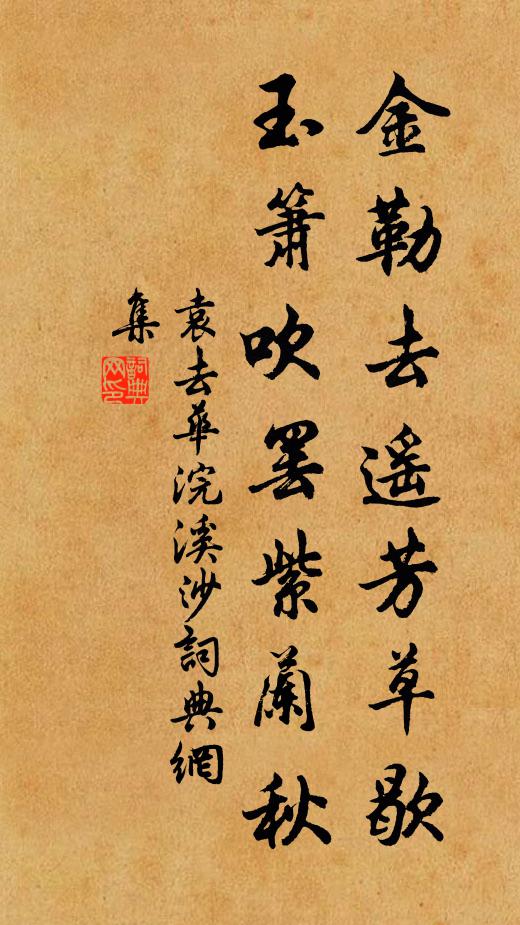 金勒去遥芳草歇
玉簫吹罢紫蘭秋
袁去華浣溪沙詞典網
集
詞典
网印